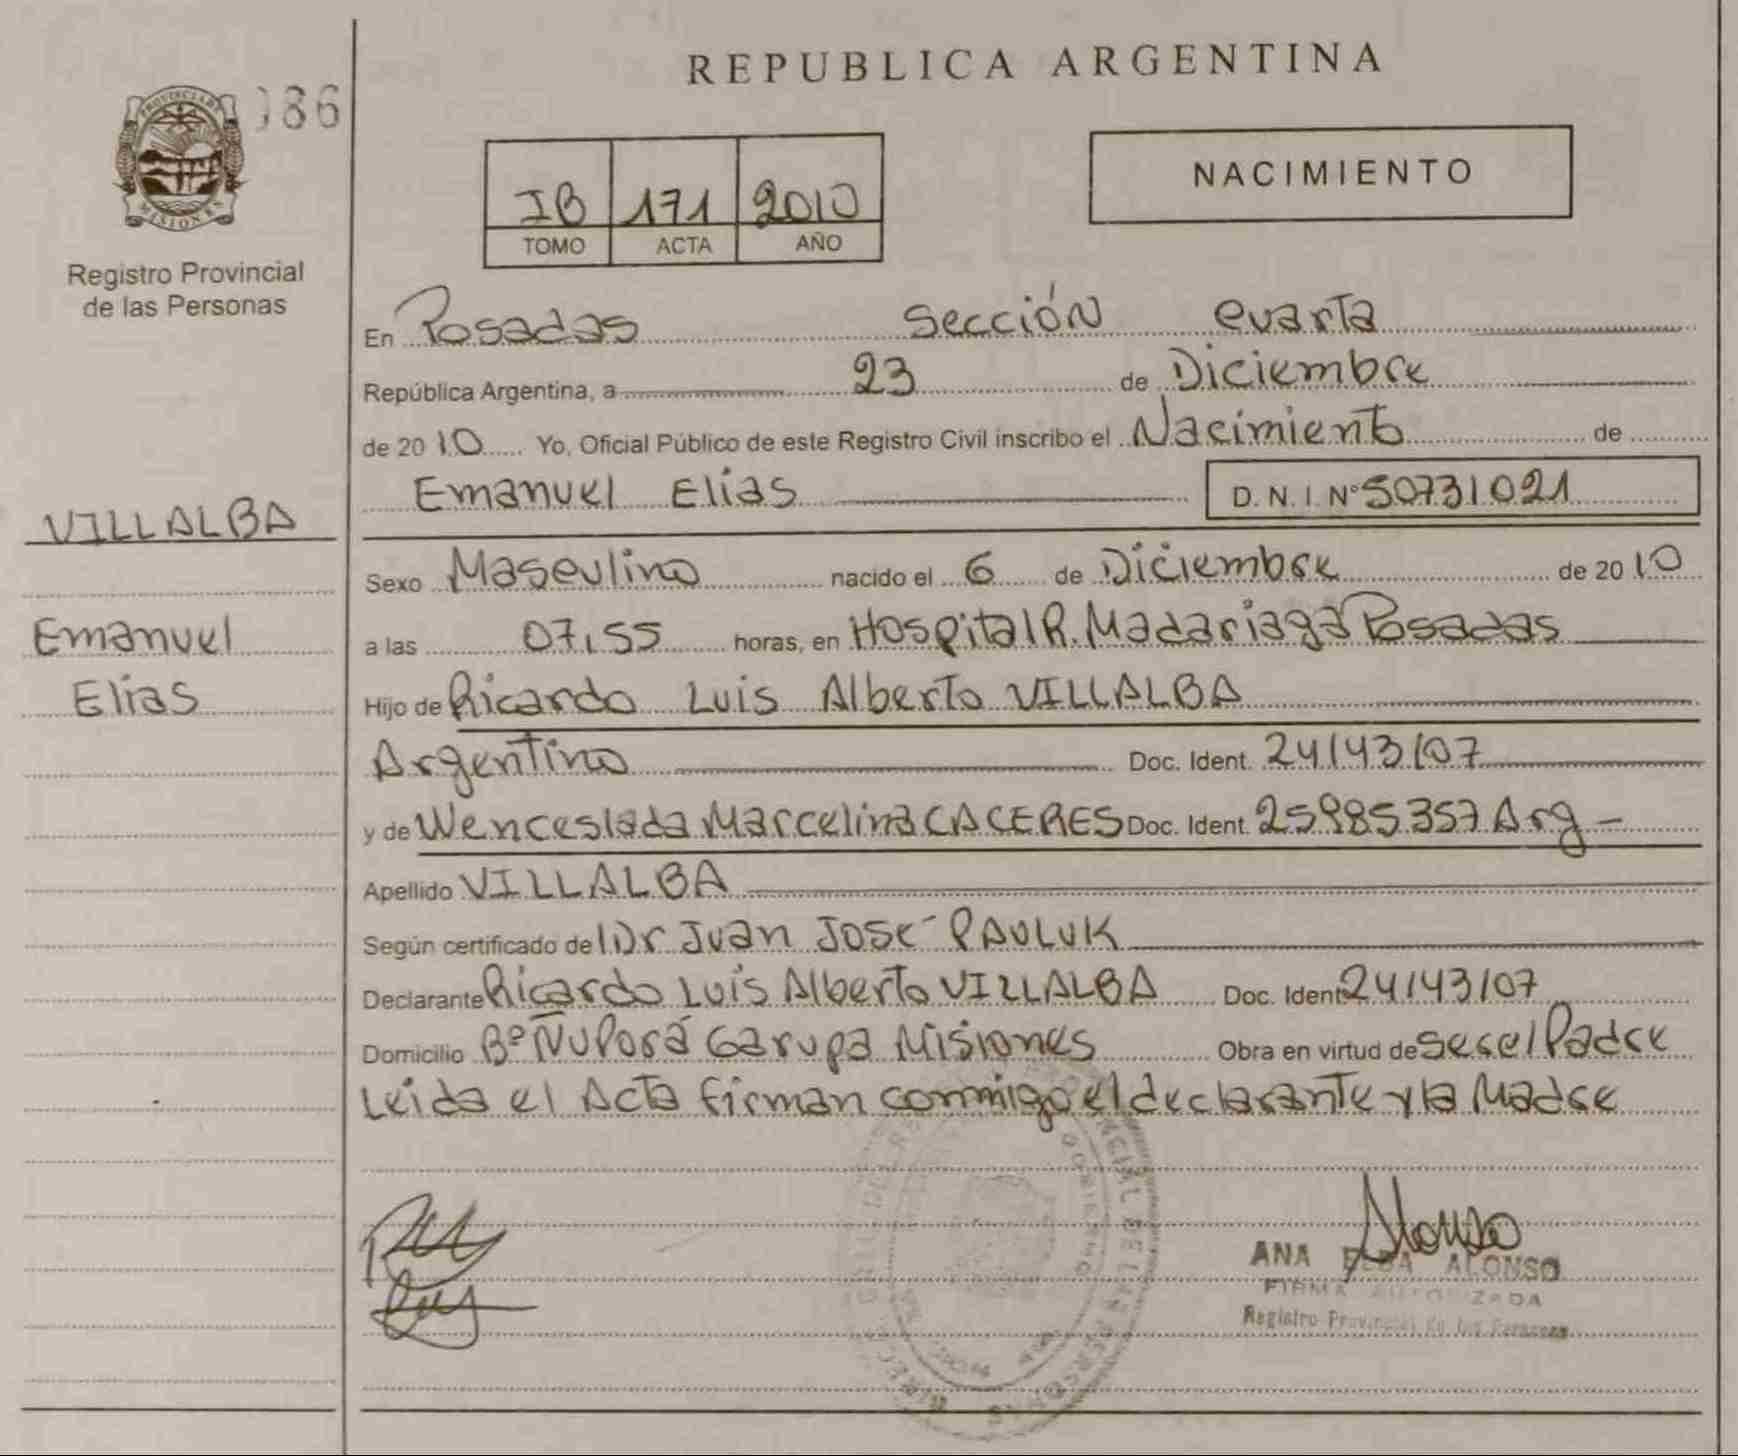 REPUBLICA ARGENTINA
PROVINCIA DE
MISIONES
086
Registro Provincial
de las Personas
IB 171 2010
TOMO ACTA AÑO
NACIMIENTO
En Posadas Sección cuarta
República Argentina, a 23 de Diciembre
de 2010 Yo, Oficial Público de este Registro Civil inscribo el Nacimiento de
Emanuel Elias D. N. I. Nº 50731021
VILLALBA
Emanuel
Elias
Sexo Masculino nacido el 6 de Diciembre de 2010
a las 07,55 horas, en Hospital R. Madariaga Posadas
Hijo de Ricardo Luis Alberto VILLALBA
Argentino Doc. Ident. 24143107
y de Wenceslada Marcelina CACERES Doc. Ident. 25985357 Arg -
Apellido VILLALBA
Según certificado del Dr Juan José PAULUK
Declarante Ricardo Luis Alberto VILLALBA Doc. Ident 24143107
Domicilio Bº Ñu Porá Garupa Misiones Obra en virtud de ser el Padre
Leida el Acta firman conmigo el declarante y la Madre
Alonso
ANA ELBA ALONSO
FIRMA AUTORIZADA
Registro Provincial de las Personas